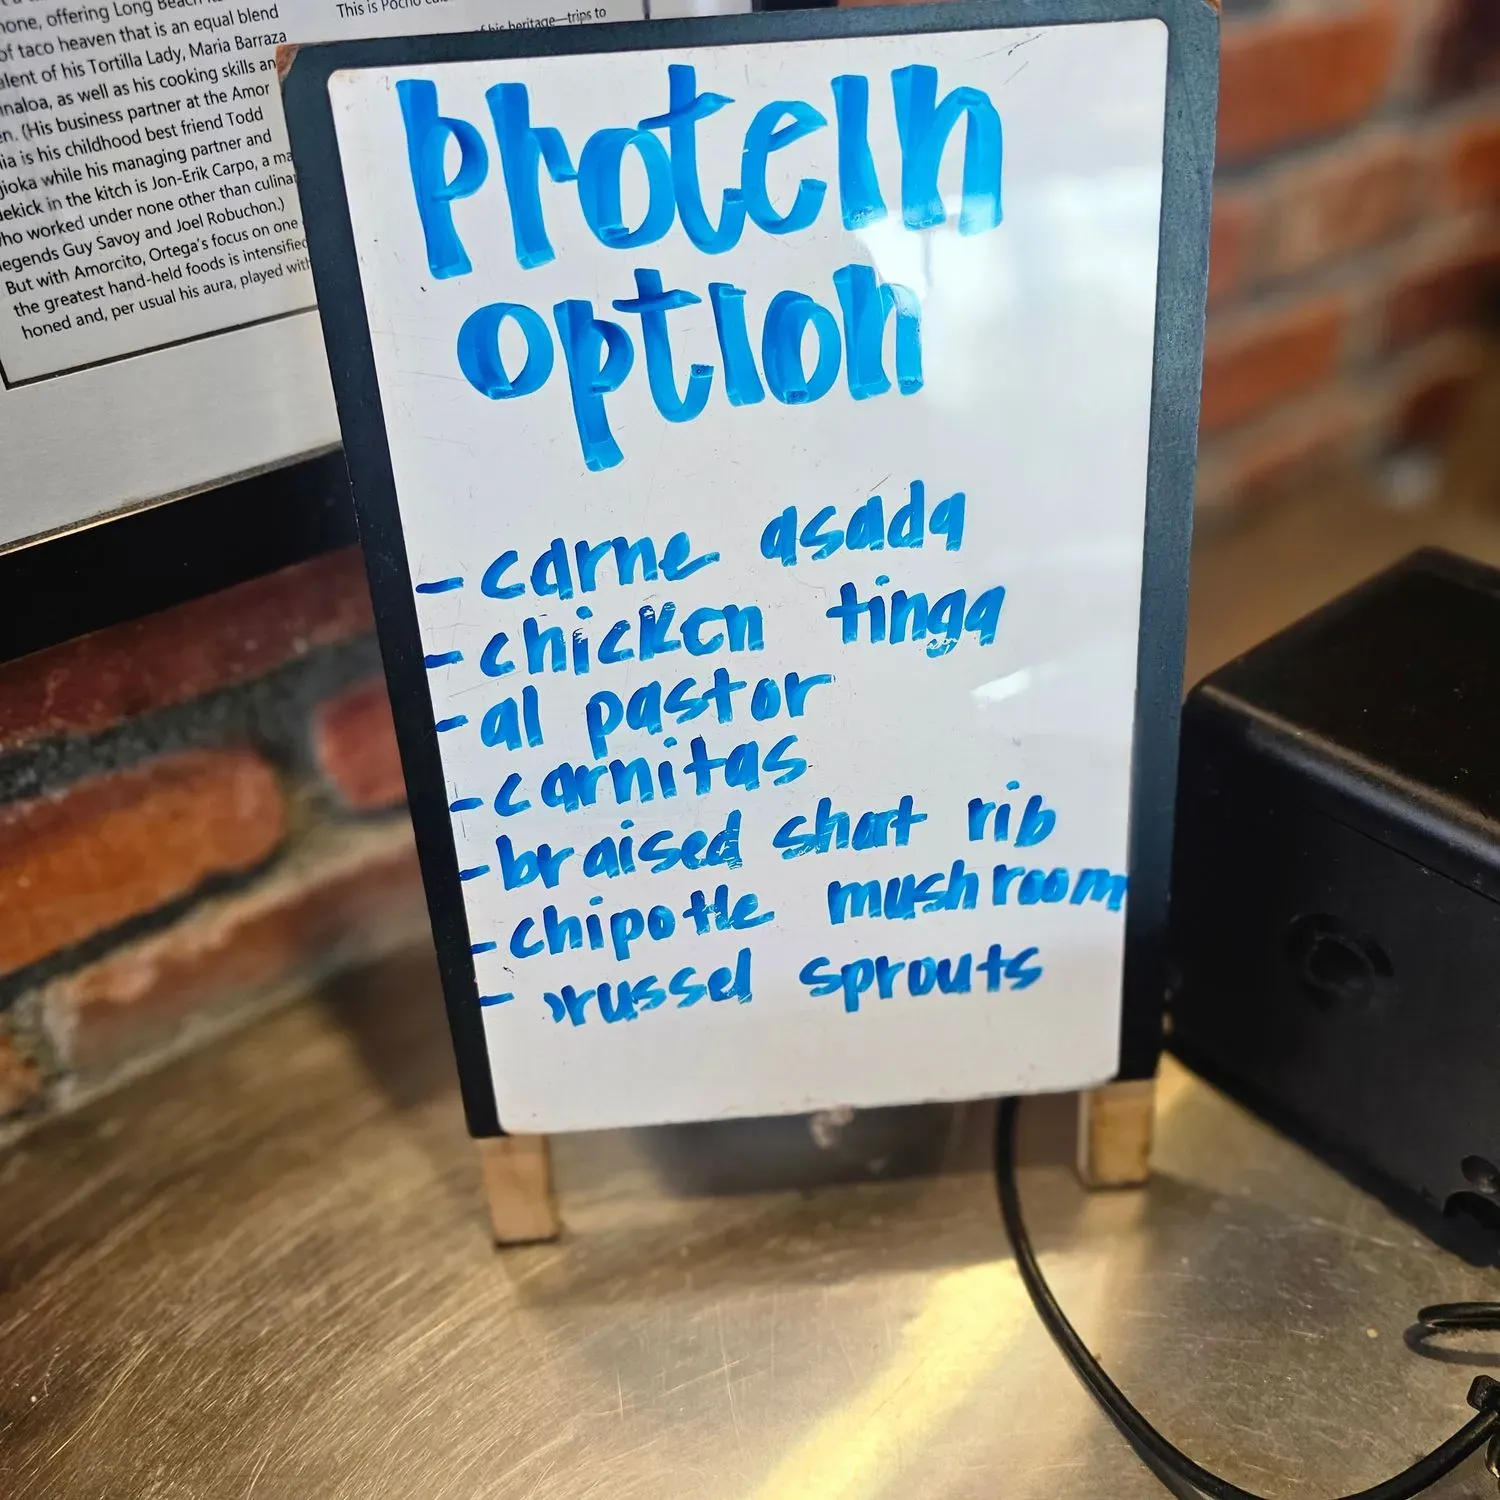 one, offering Long Beach
of taco heaven that is an equal blend
alent of his Tortilla Lady, Maria Barraza
inaloa, as well as his cooking skills an
en. (His business partner at the Amor
ia is his childhood best friend Todd
jioka while his managing partner and
dekick in the kitch is Jon-Erik Carpo, a ma
who worked under none other than culinar
legends Guy Savoy and Joel Robuchon.)
But with Amorcito, Ortega's focus on one
the greatest hand-held foods is intensified
honed and, per usual his aura, played with
This is Pocho
of his heritage—trips to
Protein
option
- carne asada
- chicken tinga
- al pastor
- carnitas
- braised short rib
- chipotle mushroom
- brussel sprouts